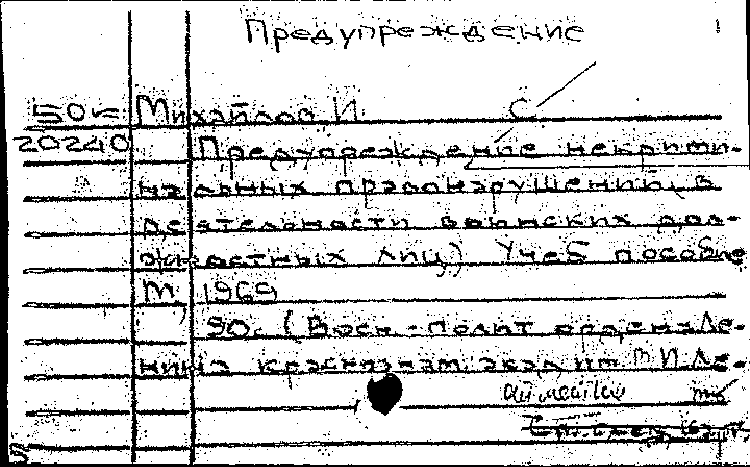 Предупреждение
50к Михайлов И. С
20240 Предупреждение некрими-
нальных правонарушений в
деятельности воинских дол-
жностных лиц) Учеб пособие
М, 1969
90с (Воен.-полит ордена Ле-
нина краснознам. акад им В И Ле-